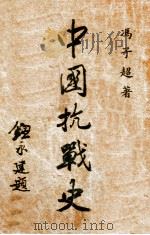 馮子超著
中國抗戰史
鈕永建題
www.mtoou.info